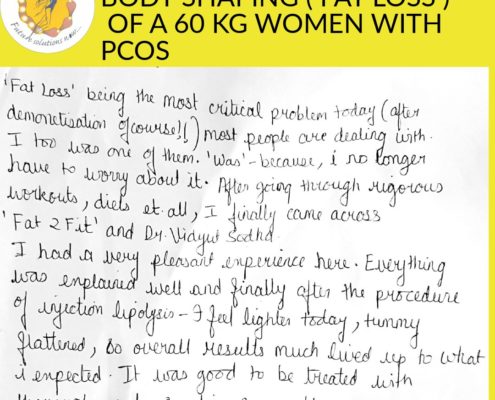 Future solutions now...
BODY SHAPING ( FAT LOSS )
OF A 60 KG WOMEN WITH
PCOS
'Fat Loss' being the most critical problem today (after
demonetisation ofcourse!!) most people are dealing with.
I too was one of them. 'Was' - because, i no longer
have to worry about it. After going through rigorous
workouts, diets et. all, I finally came across
'Fat 2 Fit' and Dr. Vidyut Sodha.
I had a very pleasant experience here. Everything
was explained well and finally after the procedure
of injection lipolysis - I feel lighter today, tummy
flattened, so overall results much lived up to what
i expected. It was good to be treated with